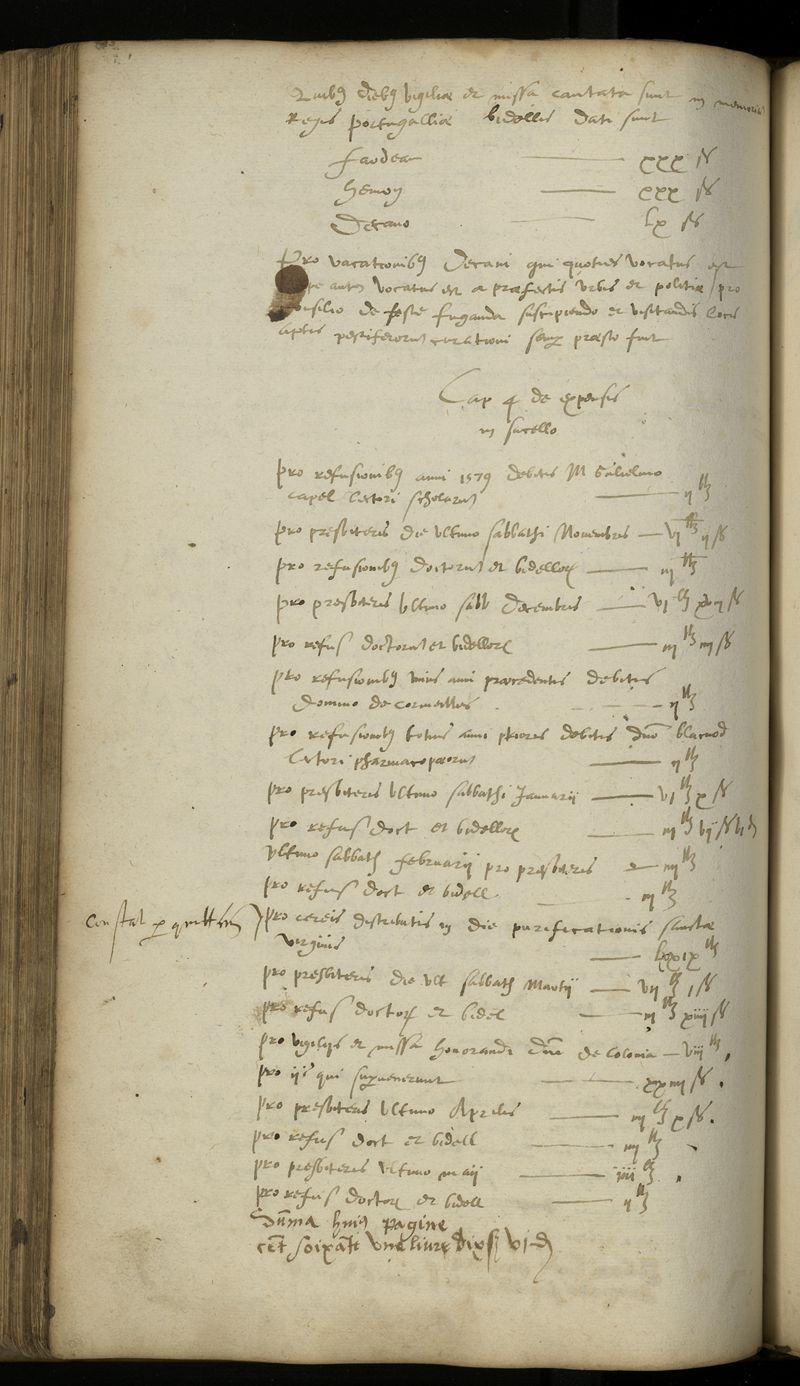 Quibus diebus vigiliae et missa cantata sunt in memoria
Regis Portugalliae bidellis dati sunt
Faodear —— xxx s
Hemon —— xxx s
Decano —— lx s
Pro vacationibus Decani qui quoties vocatus est
autem vocatus est a praefectis urbis et politiae pro
consilio de peste fuganda suscipiendo et visitandis locis
aptis pestiferorum curationi semper praesto fuit
Cap 4 de expensis
in sacello
Pro refusionibus anni 1579 debitis M Gulielmo
Capel lectori scholarum —— ij lb
Pro presbiteris die ultimo sabbathi Novembris — vj lb ij s
Pro refusionibus doctorum et bidellorum —— iij lb
Pro presbiteris ultimo sabb Decembris —— vj lb s
Pro refus doctorum et bidellorum —— iij lb iiij s
Pro refusionibus unius anni praecedentis debitis
Domino de Cormeilles — ij lb
Pro refusionibus totius anni prioris debitis dno Blacuod
lectori pharmacopaeorum —— ij lb
Pro presbiteris ultimo sabbathi Januarii —— vj lb x s
Pro refus doct et bidellorum —— iij lb vij s
Ultimo sabbath Februarii pro presbiteris — iiij lb
Pro refus doct et bidell — iij lb
Constat per quittam
Pro cereis distributis in die purificationis sanctae
virginis —— lxxix lb
Pro presbiteris die ult sabbath Martij —— vij lb j s
Pro refus doctor et bidel —— iij lb xiiij s
Pro vigiliis et missa honorandi dni de Colonia — vij lb
Pro iis qui supvenerunt —— xxiiij s
Pro presbiteris ultimo Aprilis —— iiij lb x s
Pro refus doct et bidell —— iij lb
Pro presbiteris ultimo maij —— iiij lb
Pro refus doctor et bidell —— ij lb
Summa huius pagine
cent soixate une livre dix s vj d